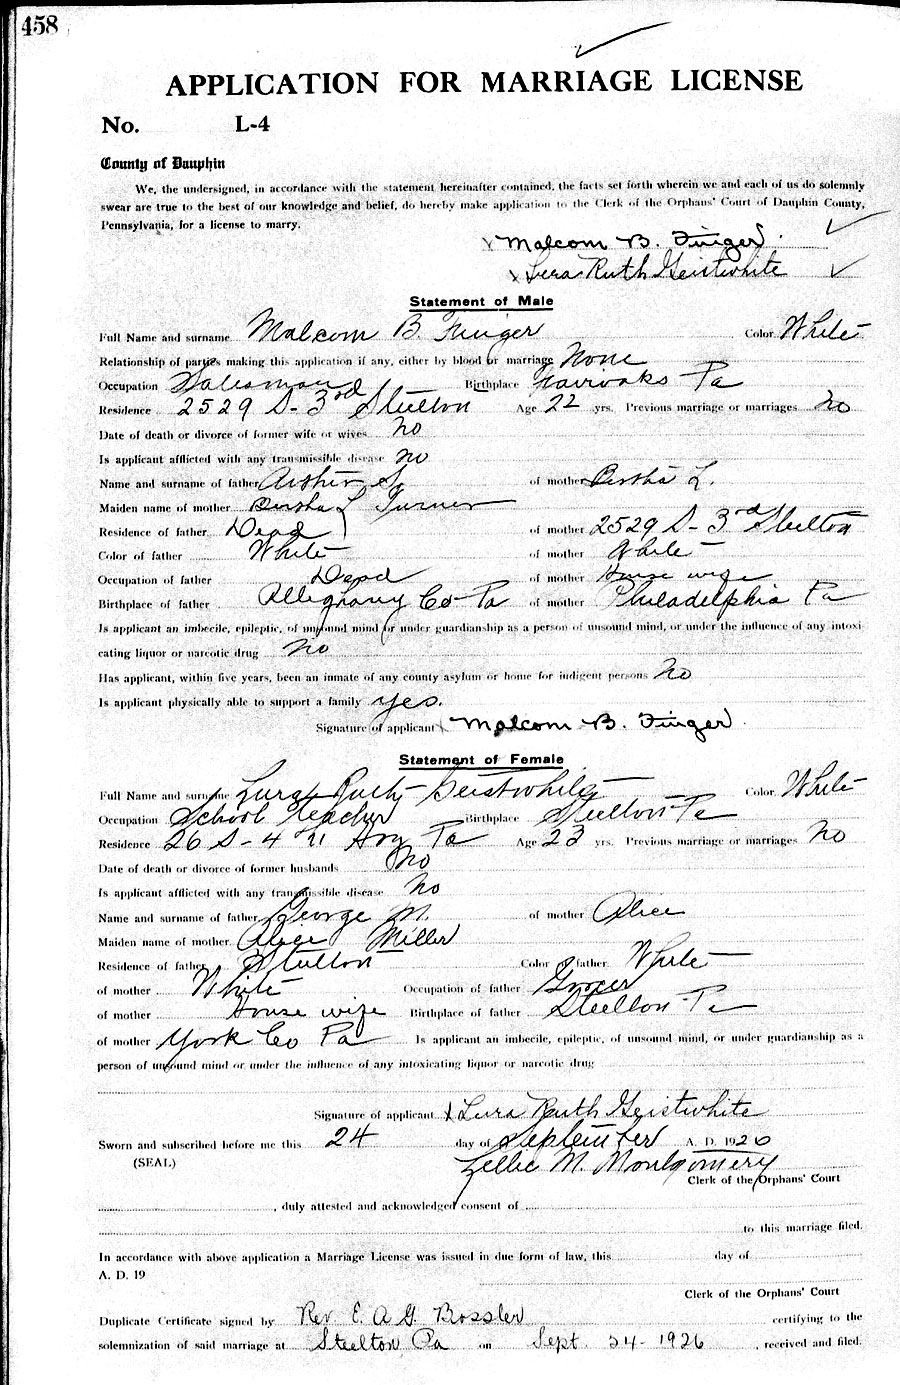 458
APPLICATION FOR MARRIAGE LICENSE
No. L-4
County of Dauphin
We, the undersigned, in accordance with the statement hereinafter contained, the facts set forth wherein we and each of us do solemnly
swear are true to the best of our knowledge and belief, do hereby make application to the Clerk of the Orphans' Court of Dauphin County,
Pennsylvania, for a license to marry.
Malcom B. Finger
Lura Ruth Geistwhite
Statement of Male
Full Name and surname Malcom B. Finger Color White
Relationship of parties making this application if any, either by blood or marriage None
Occupation Salesman Birthplace Fairoaks Pa
Residence 2529 S-3rd Steelton Age 22 yrs. Previous marriage or marriages no
Date of death or divorce of former wife or wives no
Is applicant afflicted with any transmissible disease no
Name and surname of father of mother Bertha L.
Maiden name of mother Bertha L Turner
Residence of father Dead of mother 2529 S-3rd Steelton
Color of father White of mother White
Occupation of father Dead of mother House wife
Birthplace of father Alleghany Co Pa of mother Philadelphia Pa
Is applicant an imbecile, epileptic, of unsound mind or under guardianship as a person of unsound mind, or under the influence of any intoxi
cating liquor or narcotic drug no
Has applicant, within five years, been an inmate of any county asylum or home for indigent persons no
Is applicant physically able to support a family yes.
Signature of applicant Malcom B. Finger
Statement of Female
Full Name and surname Lura Ruth Geistwhite Color White
Occupation School Teacher Birthplace Steelton Pa
Residence 26 S-4 Pa Age 23 yrs. Previous marriage or marriages no
Date of death or divorce of former husbands no
Is applicant afflicted with any transmissible disease no
Name and surname of father George M. of mother Alice
Maiden name of mother Alice Miller
Residence of father Steelton Color of father White
of mother White Occupation of father Grocer
of mother House wife Birthplace of father Steelton Pa
of mother York Co Pa Is applicant an imbecile, epileptic, of unsound mind, or under guardianship as a
person of unsound mind or under the influence of any intoxicating liquor or narcotic drug
Signature of applicant Lura Ruth Geistwhite
Sworn and subscribed before me this 24 day of September A. D. 1926
(SEAL) M. Montgomery
Clerk of the Orphans' Court
, duly attested and acknowledged consent of
to this marriage filed.
In accordance with above application a Marriage License was issued in due form of law, this day of
A. D. 19
Clerk of the Orphans' Court
Duplicate Certificate signed by Rev. E. A. G. Bossler certifying to the
solemnization of said marriage at Steelton Pa on Sept. 24-1926 , received and filed.